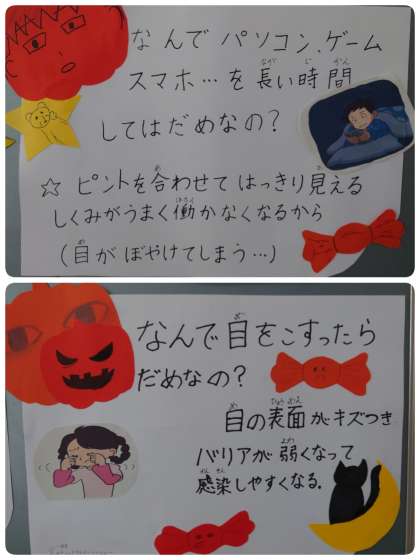 なんで パソコン、ゲーム
スマホ…を長い時間
なが じ かん
してはだめなの?
☆ ピントを合わせて はっきり見える
あ み
しくみがうまく働かなくなるから
はたら
(目が ぼやけてしまう…)
め
なんで目をこすったら
め
だめなの?
目の表面がキズつき
め ひょう めん
バリアが弱くなって
よわ
感染しやすくなる.
かん せん